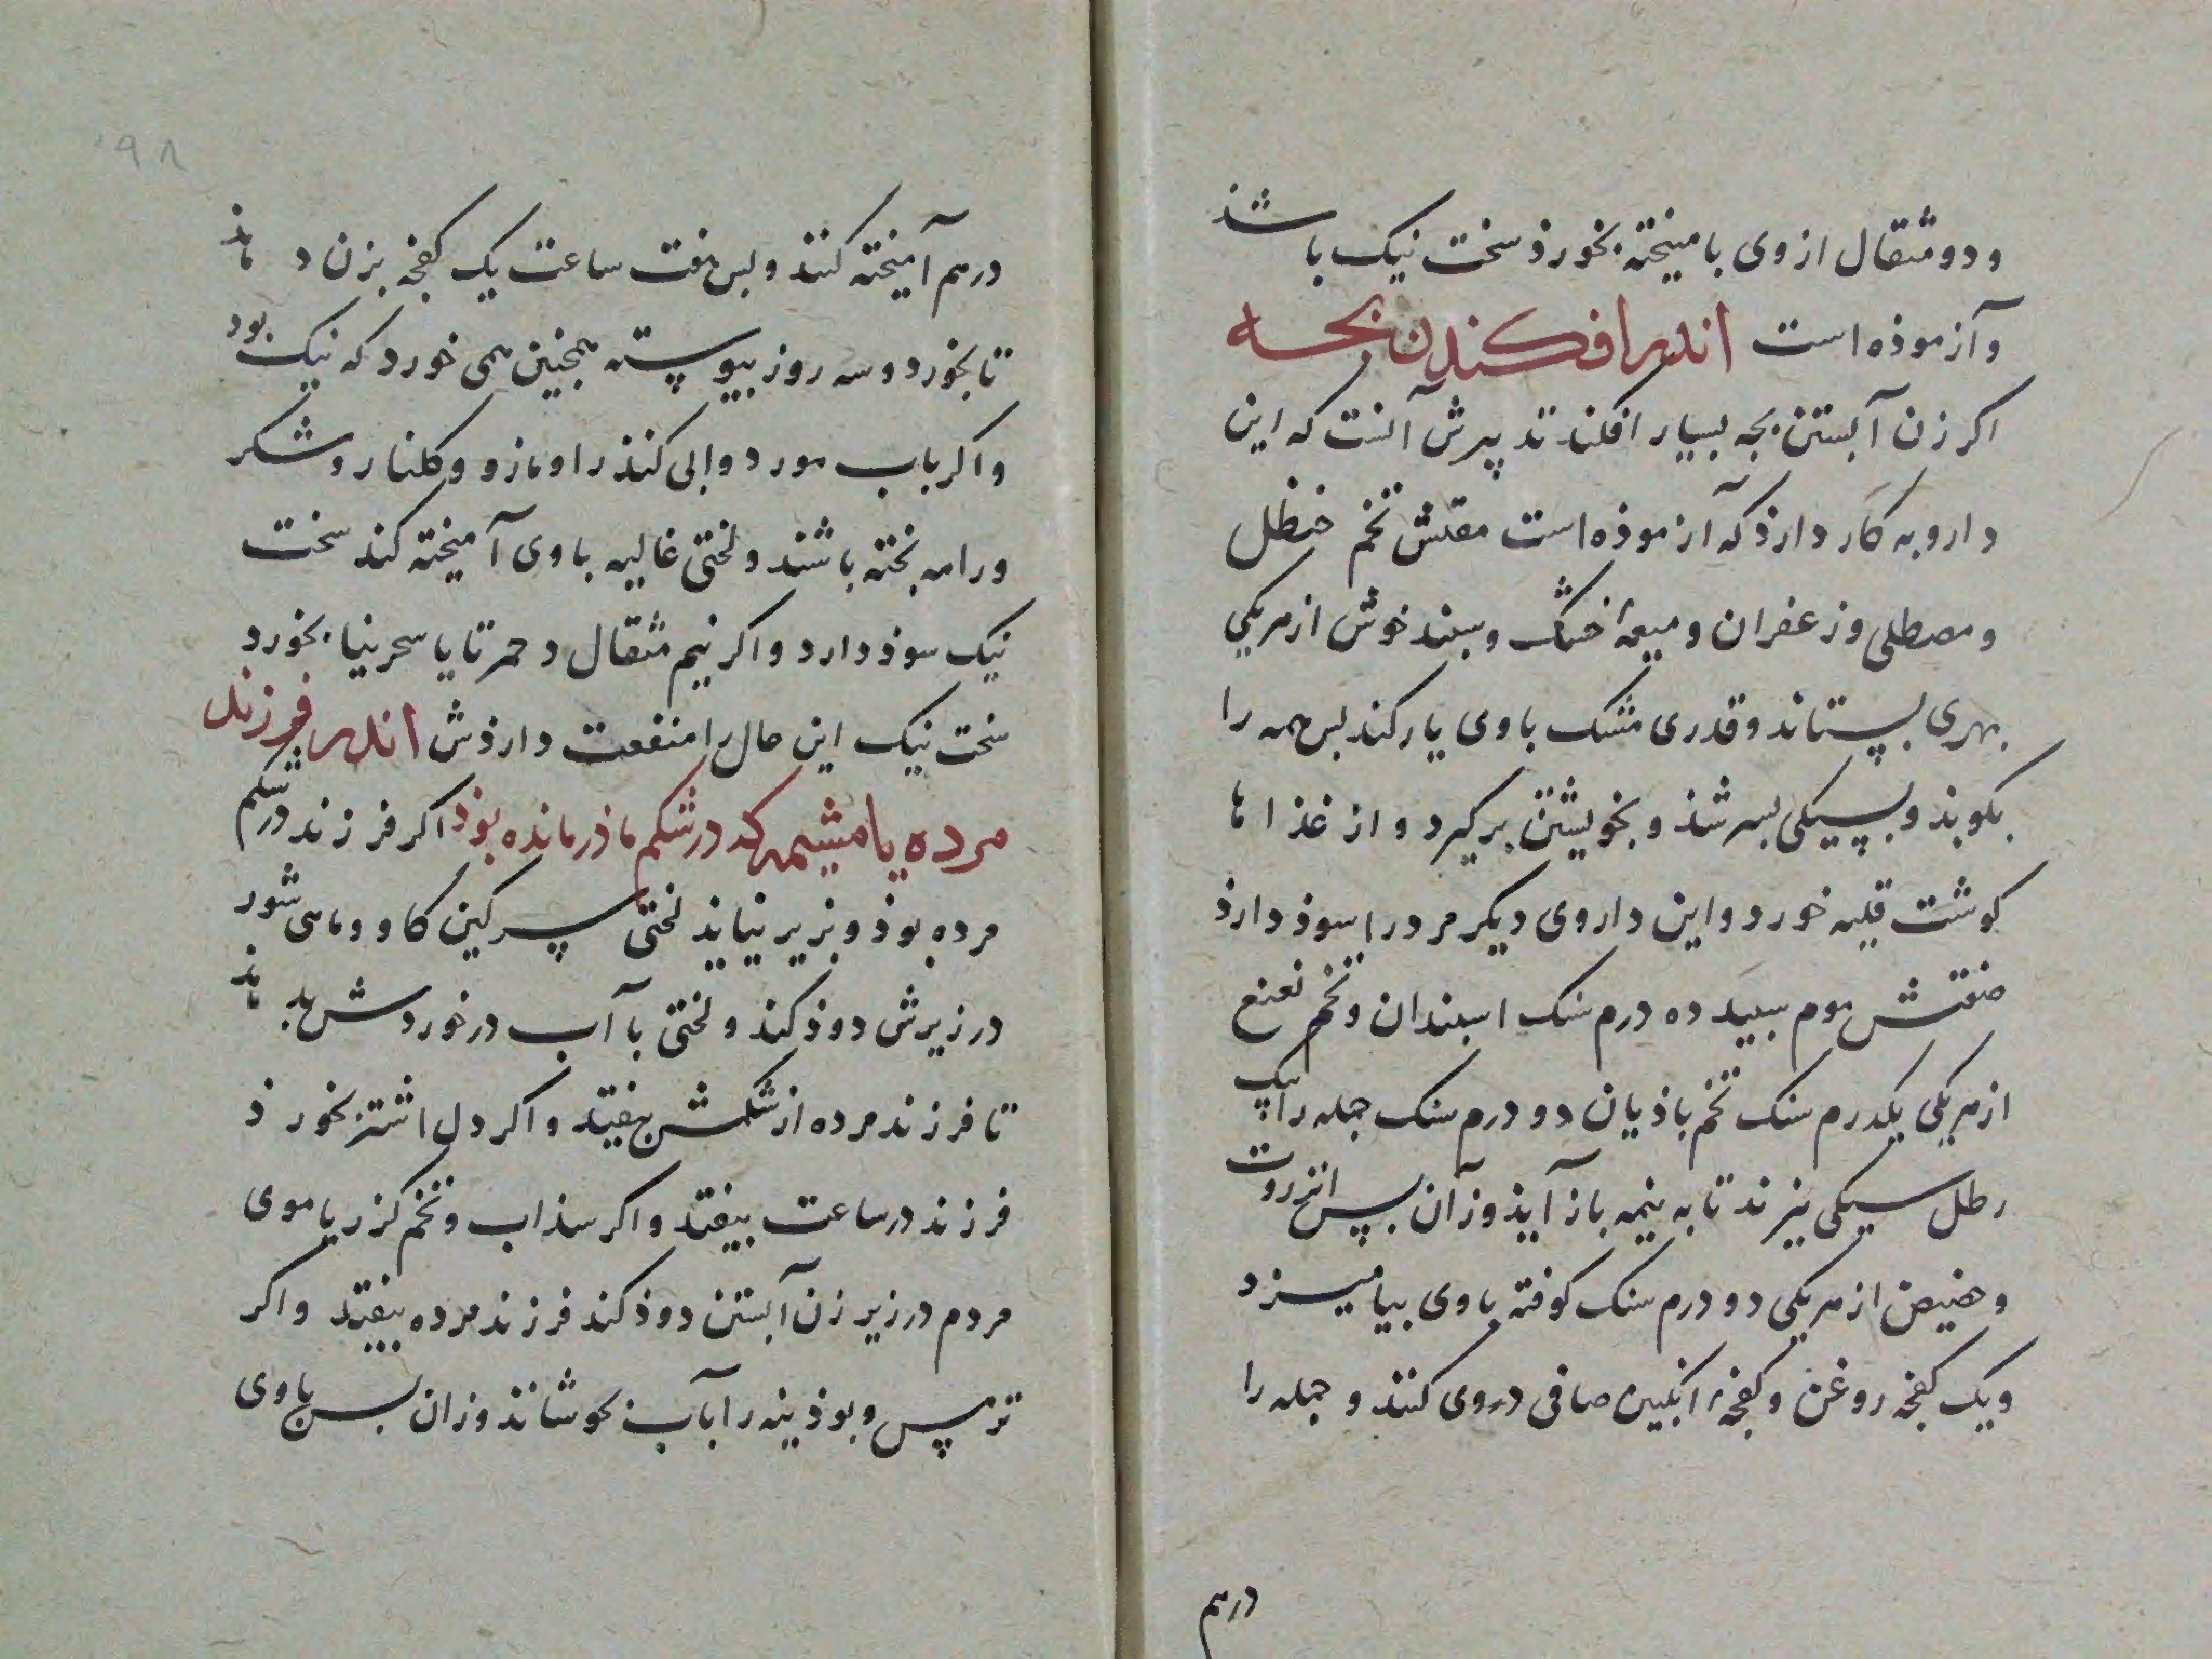 و دو مثقال از وی بامیخته بخورذ سخت نیک باشذ
و آزموذه است اندر افکندن بچه
اکر زن آبستن بچه بسیار افکند تدپیرش آنست که این
دارو به کار دارذ که آزموذه است مقلش تخم حنظل
و مصطلی و زعفران و میعهٔ خشک و سپند خوش از هریکی
بهری بپستاند و قدری مشک باوی یار کند پس همه را
بکوبذ و بپسیکی بسرشذ و بخویشتن برکیرد و از غذاها
کوشت قلیه خورد و این داروی دیکر مردرا سوذ دارذ
صفتش موم سپید ده درم سنک اسپندان و تخم نعنع
از هریکی یکدرم سنک تخم باذیان دو درم سنک جمله را بیک
رطل سیکی بپزند تا به نیمه باز آیذ وزآن پس انزروت
و حضیض از هریکی دو درم سنک کوفته باوی بیامیزد
و یک کفچه روغن و کفچهٔ انکبین صافی دروی کنند و جمله را
درهم
۹۸
درهم آمیخته کنند و پس هفت ساعت یک کفچه بزن دهاذ
تا بخورد و سه روز بپیوسته همچنین همی خورد که نیک بود
و اکر باب مورد و ابی کنذ راو مازو و کلنار و شکر
و رامه پخته باشند و لختی غالیه باوی آمیخته کند سخت
نیک سوذ دارد و اکر نیم مثقال دحمرتا یا سحرینیا بخورد
سخت نیک این حال را منفعت دارذش اندر فرزند
مرده یا مشیمه که در شکم ماذر مانده بوذ اکر فرزند در شکم
مرده بوذ و بزیر نیایذ لختی سرکین کاو و ماهی شور
در زیرش دوذ کند و لختی با آب در خوردش بدهاذ
تا فرزند مرده از شکمش بیفتد و اکر دل اشتر بخورذ
فرزند در ساعت بیفتد و اکر سذاب و تخم کزر یا موی
مردم در زیر زن آبستن دوذ کند فرزند مرده بیفتد و اکر
ترمپس و بوذینه را بآب بجوشانذ وزان پس باوی